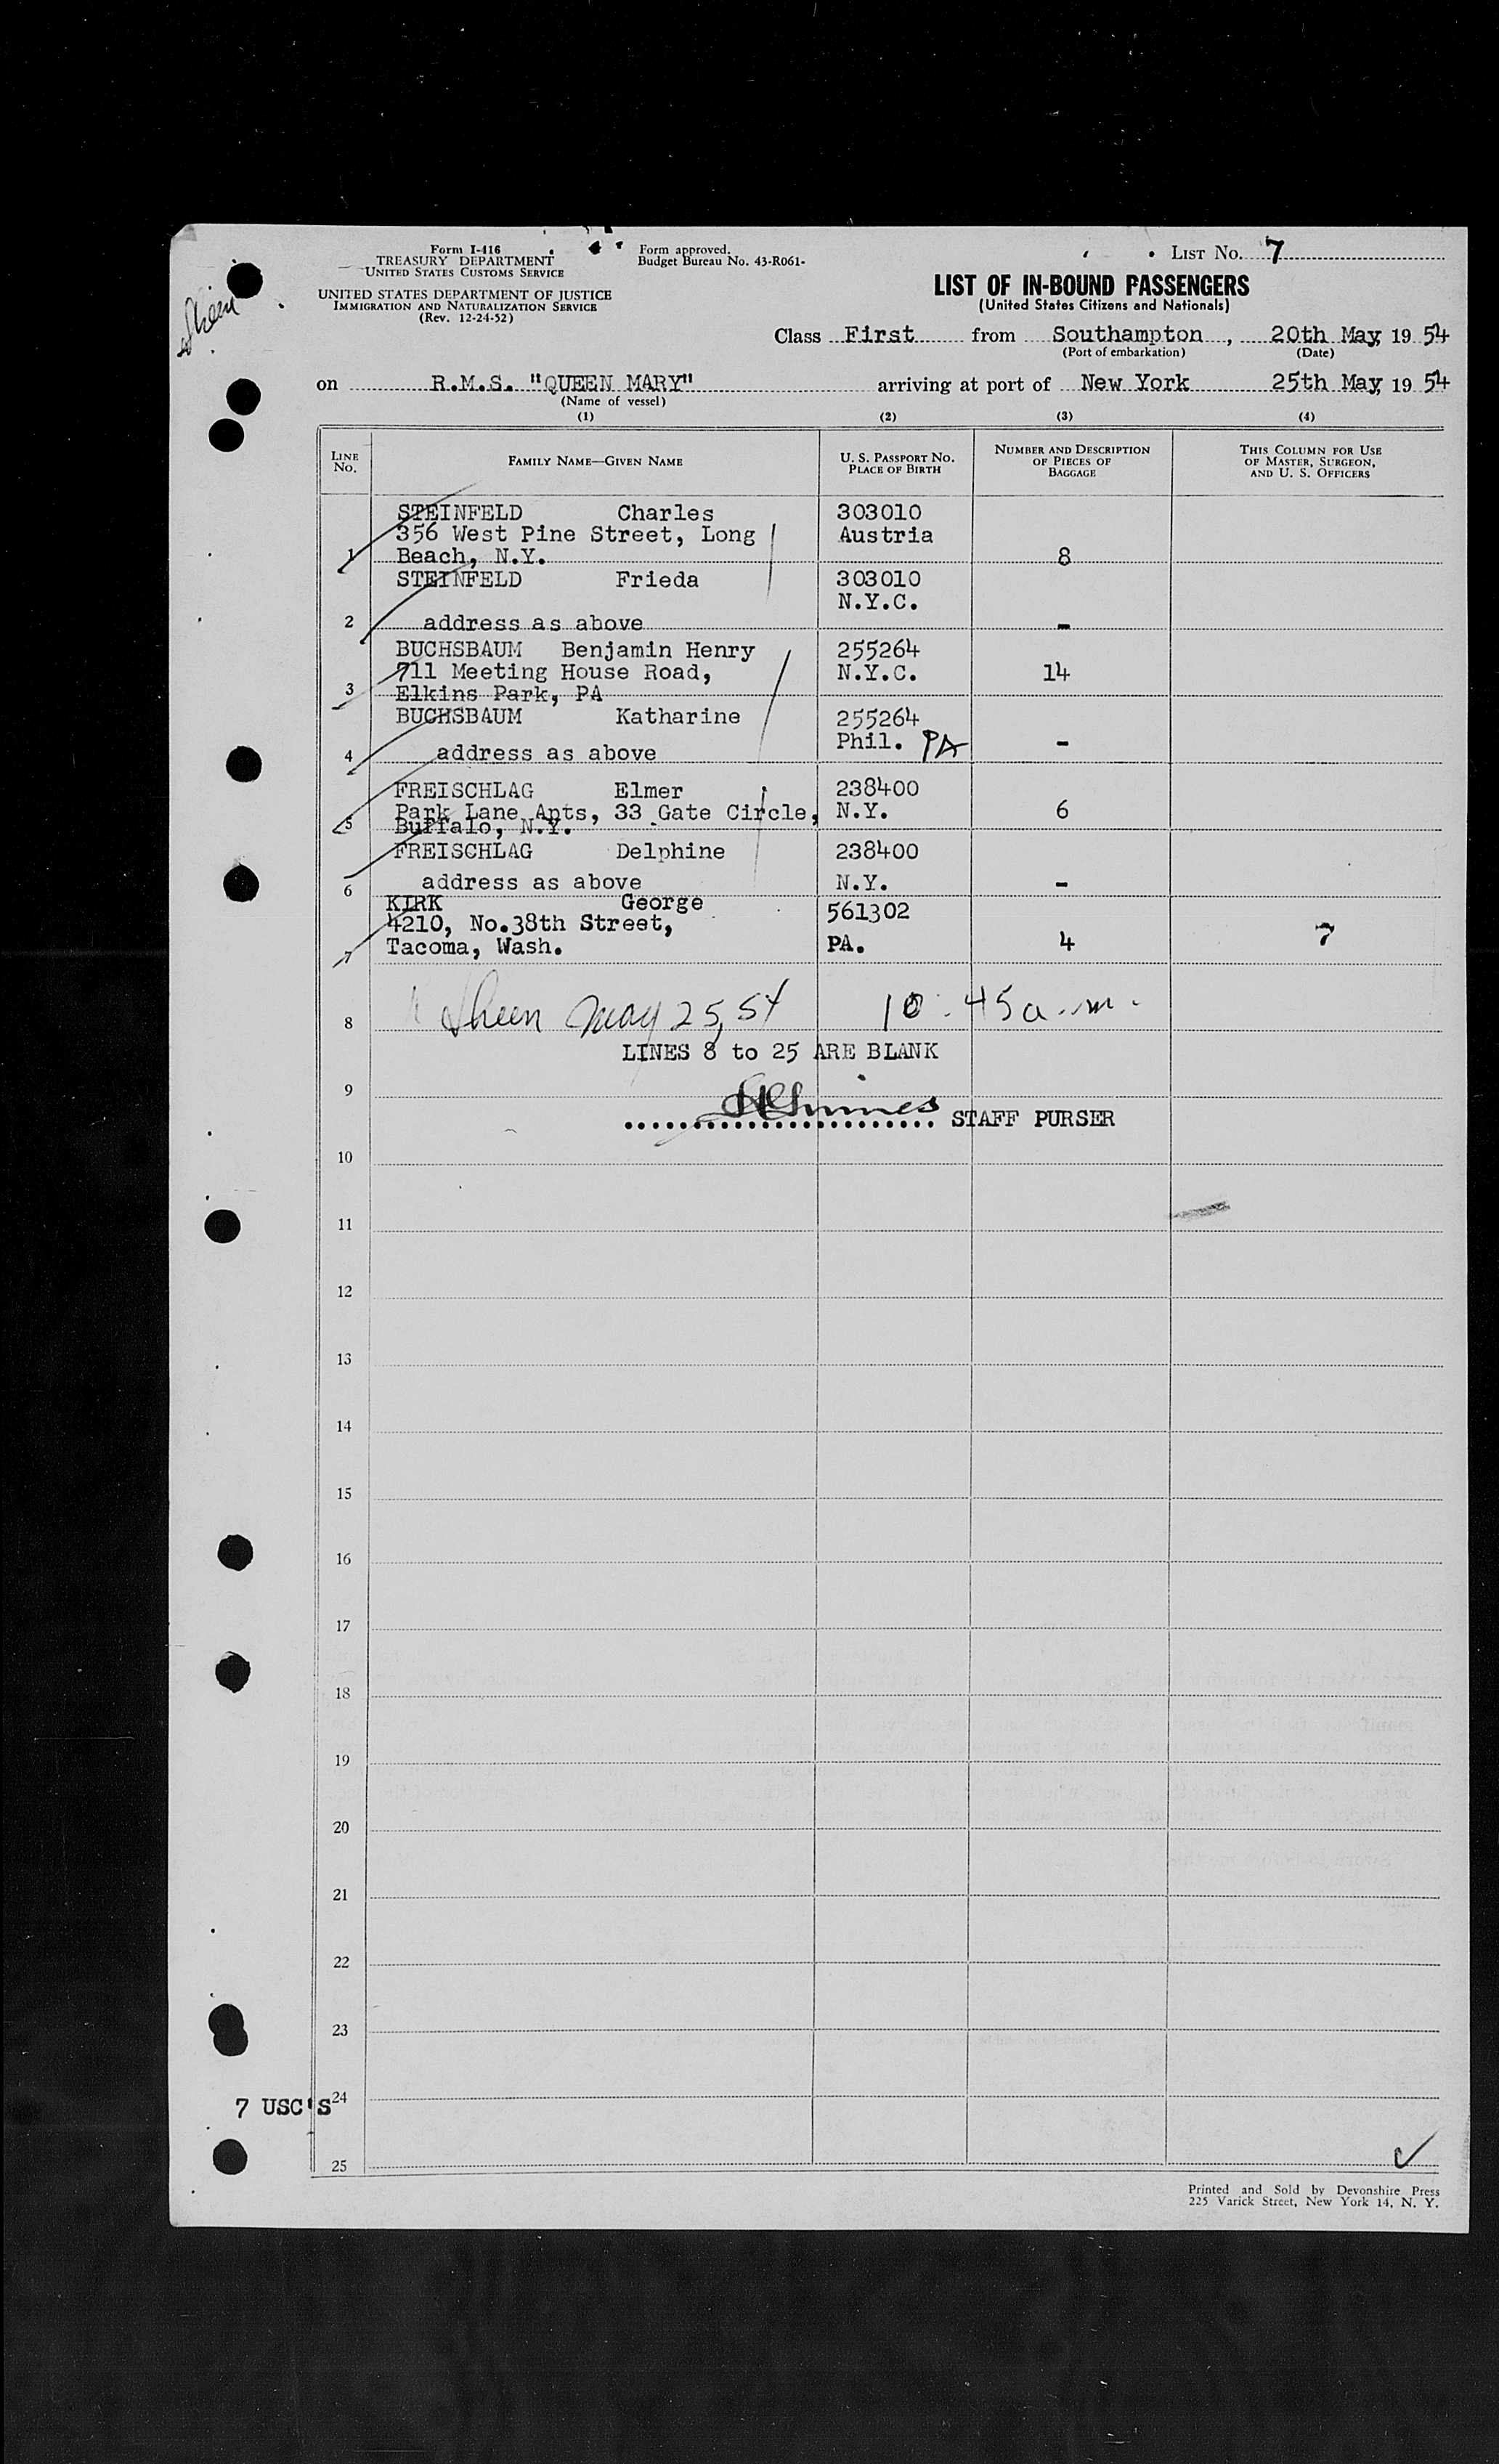 Form I-416
TREASURY DEPARTMENT
UNITED STATES CUSTOMS SERVICE
UNITED STATES DEPARTMENT OF JUSTICE
IMMIGRATION AND NATURALIZATION SERVICE
(Rev. 12-24-52)
Form approved.
Budget Bureau No. 43-R061-
LIST No. 7
LIST OF IN-BOUND PASSENGERS
(United States Citizens and Nationals)
Class First from Southampton, 20th May, 19 54
(Port of embarkation) (Date)
on R.M.S. "QUEEN MARY" arriving at port of New York 25th May, 19 54
(Name of vessel)
(1) (2) (3) (4)
LINE No. FAMILY NAME—GIVEN NAME U. S. PASSPORT NO. PLACE OF BIRTH NUMBER AND DESCRIPTION OF PIECES OF BAGGAGE THIS COLUMN FOR USE OF MASTER, SURGEON, AND U. S. OFFICERS
STEINFELD Charles 303010
356 West Pine Street, Long Austria
1 Beach, N.Y. 8
STEINFELD Frieda 303010
N.Y.C.
2 address as above -
BUCHSBAUM Benjamin Henry 255264
711 Meeting House Road, N.Y.C. 14
3 Elkins Park, PA
BUCHSBAUM Katharine 255264
Phil. PA
4 address as above -
FREISCHLAG Elmer 238400
Park Lane Apts, 33 Gate Circle, N.Y. 6
5 Buffalo, N.Y.
FREISCHLAG Delphine 238400
6 address as above N.Y. -
KIRK George 561302
4210, No.38th Street,
7 Tacoma, Wash. PA. 4 7
8 Sheen May 25, 54 10:45 a.m.
LINES 8 to 25 ARE BLANK
9
STAFF PURSER
10
11
12
13
14
15
16
17
18
19
20
21
22
23
7 USC'S 24
25
Printed and Sold by Devonshire Press
225 Varick Street, New York 14, N. Y.